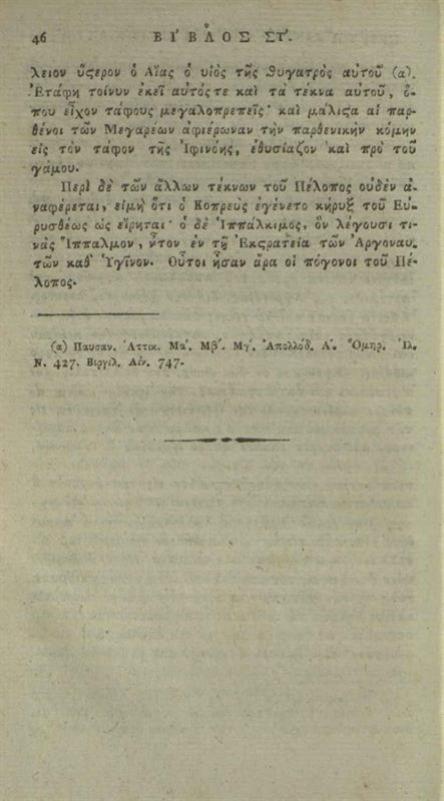 46 ΒΙ΄ΒΛΟΣ ΣΤ΄.
λειον ὕϛερον ὁ Αἴας ὁ υἱὸς τῆς θυγατρὸς αὐτοῦ (α).
Ἐτάφη τοίνυν ἐκεῖ αὐτός τε καὶ τὰ τέκνα αὐτοῦ, ὅ-
που εἶχον τάφους μεγαλοπρεπεῖς· καὶ μάλιϛα αἱ παρ-
θένοι τῶν Μεγαρέων ἀφιέρωναν τὴν παρθενικὴν κόμην
εἰς τὸν τάφον τῆς Ἰφινόης, ἐθυσίαζον καὶ πρὸ τοῦ
γάμου.
Περὶ δὲ τῶν ἄλλων τέκνων τοῦ Πέλοπος οὐδὲν ἀ-
ναφέρεται, εἰμὴ ὅτι ὁ Κοπρεὺς ἐγένετο κήρυξ τοῦ Εὐ-
ρυσθέως ὡς εἴρηται· ὁ δὲ Ἱππάλκιμος, ὃν λέγουσι τι-
νὲς Ἵππαλμον, ἦτον ἐν τῇ Ἐκϛρατείᾳ τῶν Ἀργοναυ-
τῶν καθ' Ὑγῖνον. Οὗτοι ἦσαν ἄρα οἱ πόγονοι τοῦ Πέ-
λοπος.
(α) Παυσαν. Ἀττικ. Μα΄. Μβ΄. Μγ΄. Ἀπολλόδ. Α΄. Ὅμηρ. Ἰλ.
Ν. 427. Βιργιλ. Αἰν. 747.